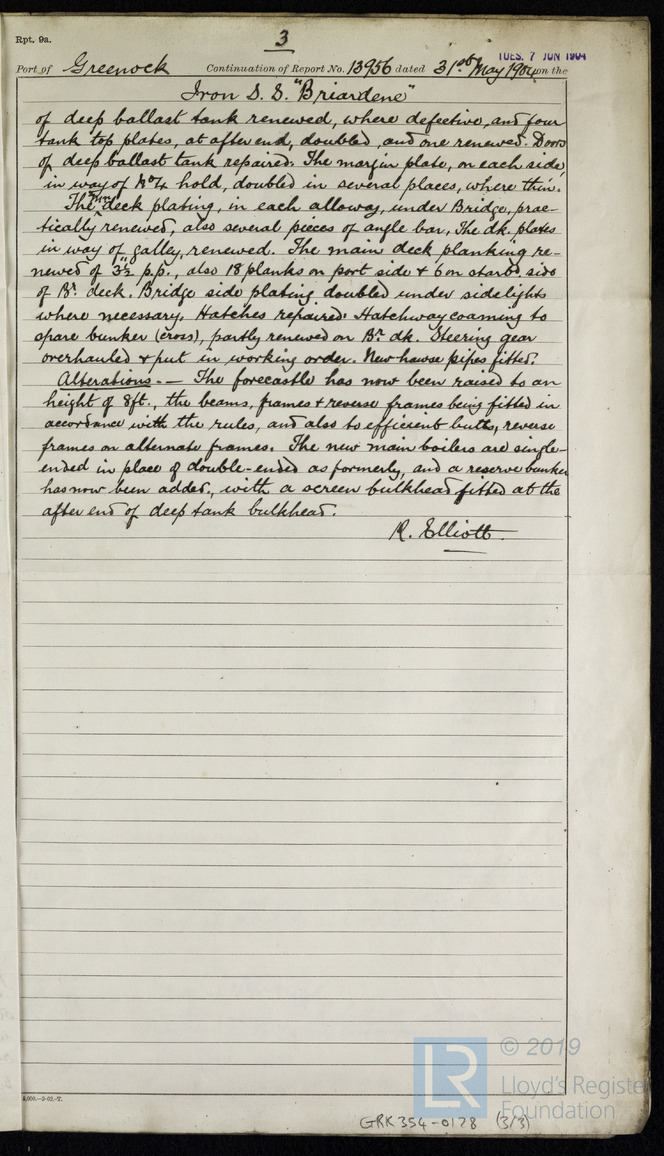 Rpt. 9a.
3
TUES. 7 JUN 1904
Port of Greenock Continuation of Report No. 13956 dated 31st May 1904 on the
Iron S. S. "Briardene"
of deep ballast tank renewed, where defective, and four
tank top plates, at after end, doubled, and one renewed. Doors
of deep ballast tank repaired. The margin plate, on each side,
in way of No 4 hold, doubled in several places, where thin.
The mn deck plating, in each alloway, under Bridge, prac-
tically renewed, also several pieces of angle bar, The dk. plates
in way of galley, renewed. The main deck planking re-
newed of 3½" p.p., also 18 planks on port side & 6 on starbd side
of Br. deck. Bridge side plating doubled under sidelights
where necessary. Hatches repaired. Hatchway coaming to
spare bunker (cross), partly renewed on Br. dk. Steering gear
overhauled & put in working order. New hawse pipes fitted.
Alterations. — The forecastle has now been raised to an
height of 8ft., the beams, frames & reverse frames being fitted in
accordance with the rules, and also to efficient butts, reverse
frames on alternate frames. The new main boilers are single-
ended in place of double-ended as formerly, and a reserve bunker
has now been added, with a screen bulkhead fitted at the
after end of deep tank bulkhead.
R. Elliott
© 2019
LR
Lloyd's Register
Foundation
GRK354-0178 (3/3)